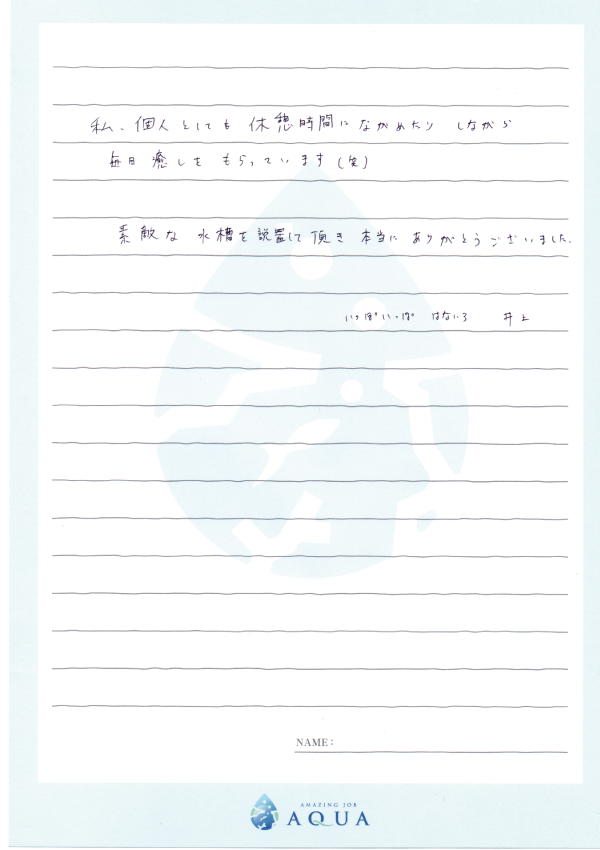 私、個人としても 休憩時間にながめたり しながら
毎日 癒しを もらっています(笑)
素敵な 水槽を設置して頂き 本当に ありがとうございました。
いっぽいっぽ はないろ 井上
NAME:
AMAZING JOB
AQUA